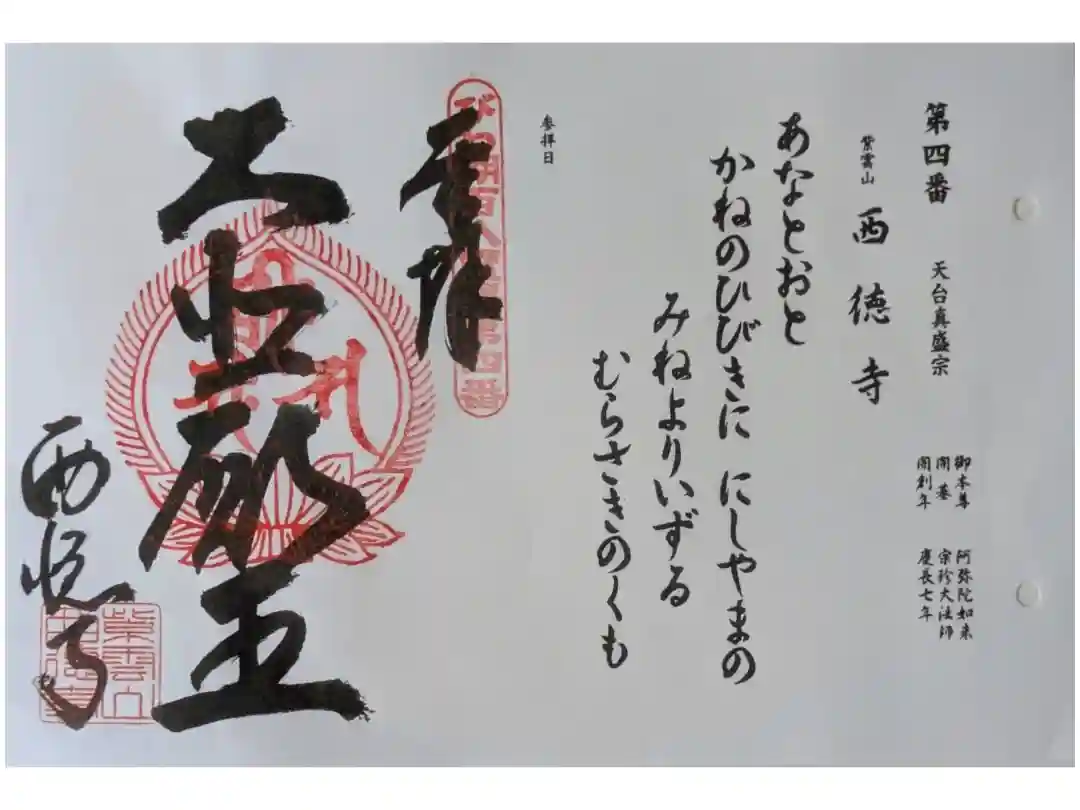 第四番 天台真盛宗
御本尊 阿弥陀如来
開基 宗珍大法師
開創年 慶長七年
紫雲山 西徳寺
あなとおと
かねのひびきに にしやまの
みねよりいずる
むらさきのくも
参拝日
奉拝
西徳寺